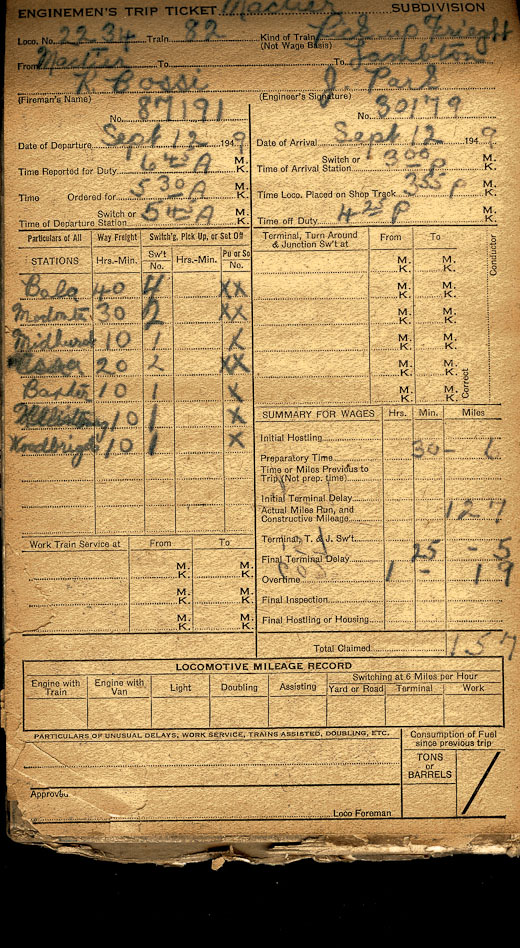 ENGINEMEN'S TRIP TICKET Mactier SUBDIVISION
Loco. No. 2234 Train 82 Kind of Train Pick up Freight
(Not Wage Basis)
From Mactier To To Lambton
K Cossi J. Park
(Fireman's Name) (Engineer's Signature)
No. 87191 No. 30179
Date of Departure Sept 12 1949 Date of Arrival Sept 12 1949
Time Reported for Duty 645 A M. K. Switch or Time of Arrival Station 300 P M. K.
Time Ordered for 530 A M. K. Time Loco. Placed on Shop Track 355 P M. K.
Switch or Time of Departure Station 545 A M. K. Time off Duty 425 P M. K.
Particulars of All Way Freight Switch'g, Pick Up, or Set Off
STATIONS Hrs.-Min. Sw't No. Hrs.-Min. Pu or So No.
Bala 40 4 XX
Medonte 30 2 XX
Midhurst 10 1 X
20 2 XX
Baxter 10 1 X
10 1 X
Woodbridge 10 1 X
Terminal, Turn Around & Junction Sw't at From To
M. K. M. K.
M. K. M. K.
M. K. M. K.
M. K. M. K.
M. K. M. K.
M. K. M. K.
Conductor
Correct
SUMMARY FOR WAGES Hrs. Min. Miles
Initial Hostling
Preparatory Time 30 -
Time or Miles Previous to Trip (Not prep. time)
Initial Terminal Delay
Actual Miles Run, and Constructive Mileage 127
Terminal, T. & J. Sw't.
Final Terminal Delay 25 - 5
Overtime 1 - 19
Final Inspection
Final Hostling or Housing
Total Claimed 157
Work Train Service at From To
M. K. M. K.
M. K. M. K.
M. K. M. K.
LOCOMOTIVE MILEAGE RECORD
Engine with Train Engine with Van Light Doubling Assisting Switching at 6 Miles per Hour
Yard or Road Terminal Work
PARTICULARS OF UNUSUAL DELAYS, WORK SERVICE, TRAINS ASSISTED, DOUBLING, ETC. Consumption of Fuel since previous trip
TONS or BARRELS /
Loco Foreman